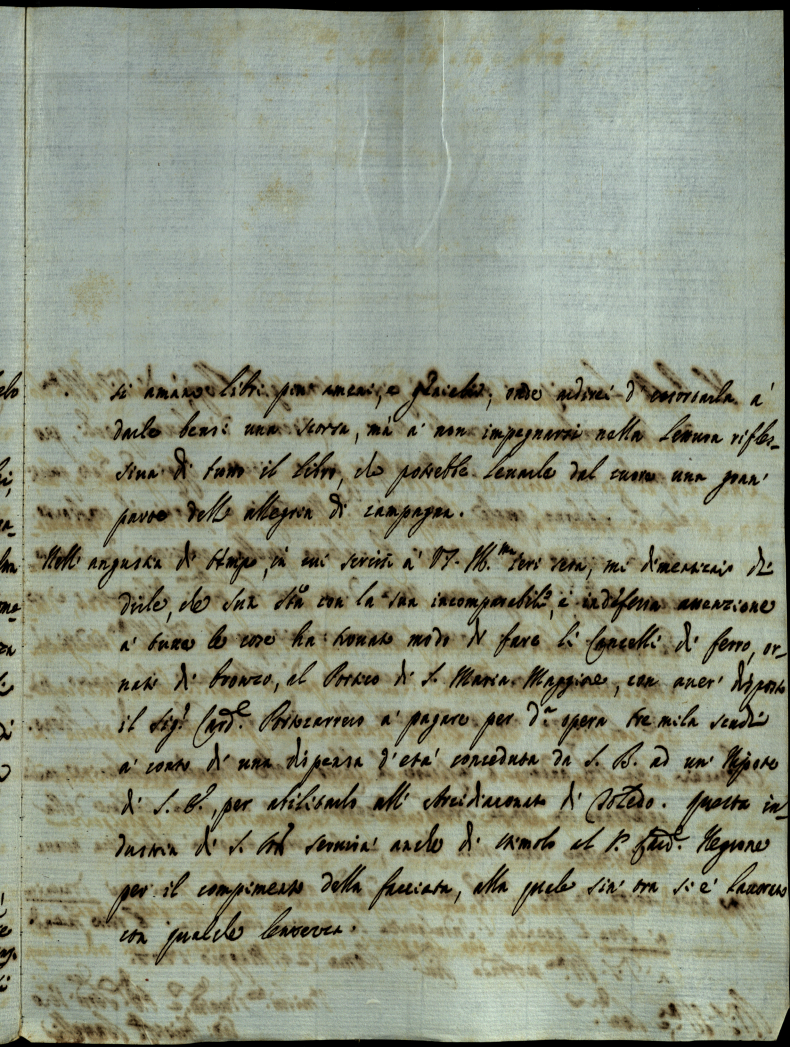 si amano libri più ameni, e giulivi, onde ardirei d'esortarla a'
darle bensì una scorsa, mà a' non impegnarsi nella lettura rifles-
siva di tutto il libro, che potrebbe levarle dal cuore una gran'
parte dell' allegria di campagna.
Nell' angustia di tempo, in cui scrissi a' V. S. Ill.ma ieri sera, mi dimenticai di
dirle, che Sua S.tà con la sua incomparabile, e indefessa attenzione
a' tutte le cose ha trovato modo di fare li Cancelli di ferro, or-
nati di bronzo, al Portico di S. Maria Maggiore, con aver' disposto
il Sig.r Card.e Portocarrero a' pagare per d.a opera tre mila scudi
a' conto di una dispensa d'età conceduta da S. B. ad un' Nipote
di S. E., per abilitarlo all' Arcidiaconato di Toledo. Questa in-
dustria di S. S.tà servirà anche di stimolo al P. Negrone
per il compimento della facciata, alla quale sin' ora si è lavorato
con qualche lentezza.